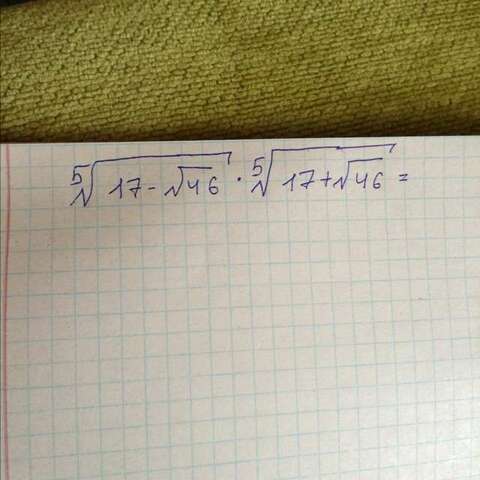 ⁵√(17-√46) · ⁵√(17+√46) =